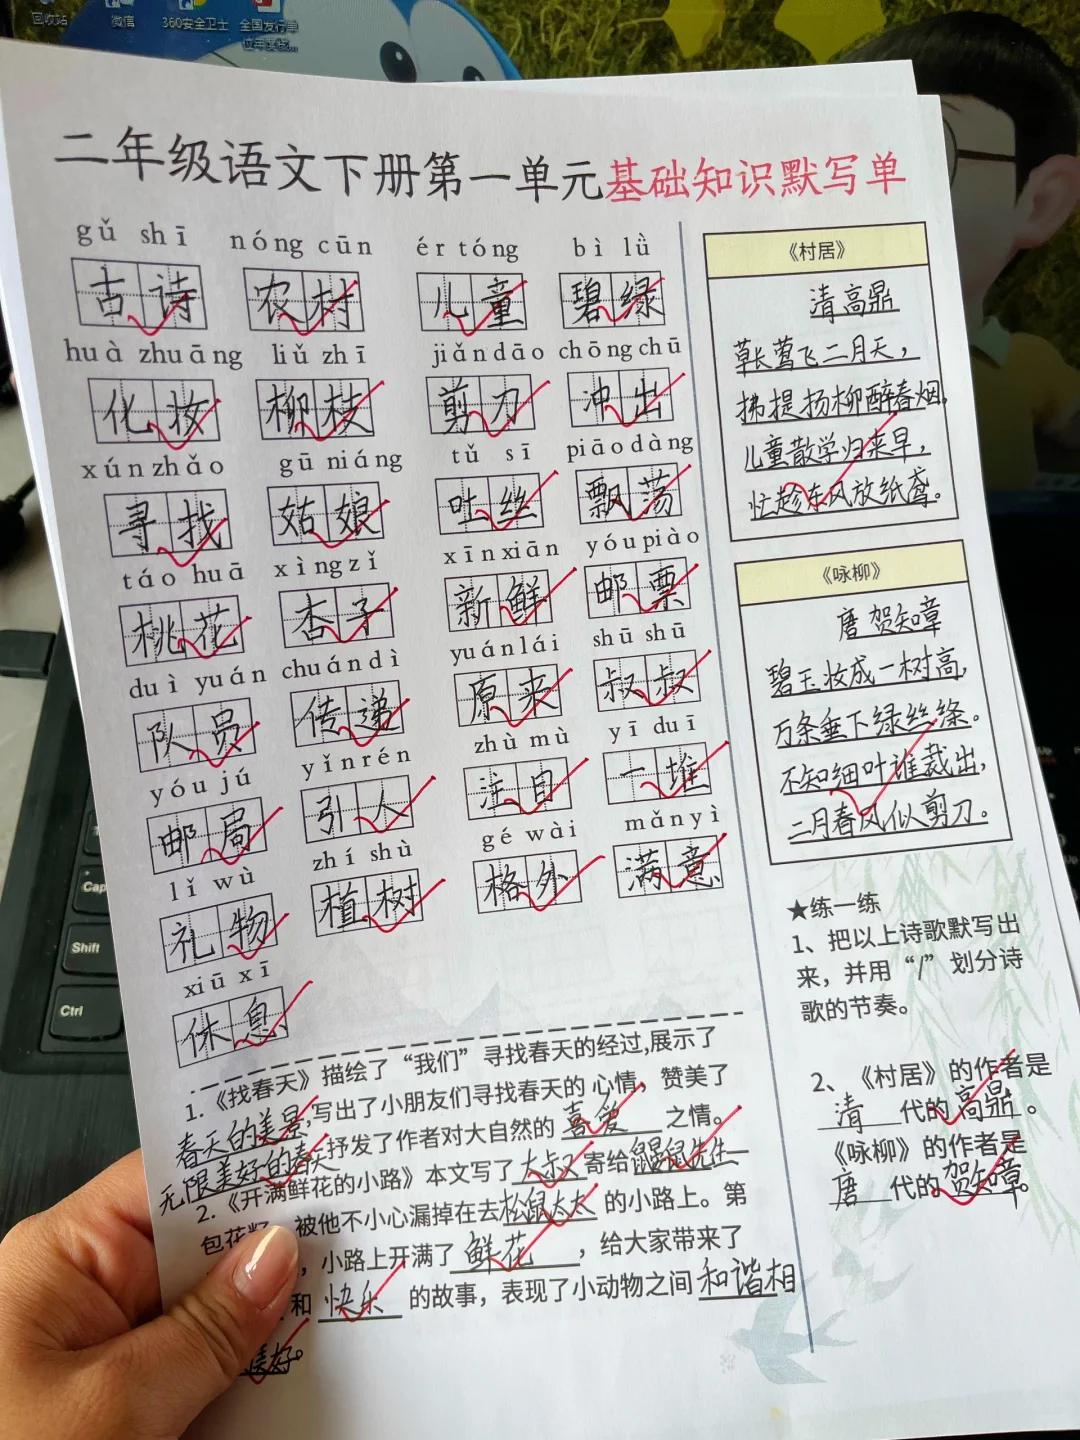 回收站 微信 360安全卫士 全国发行单
位年度核...
二年级语文下册第一单元基础知识默写单
gǔ shī nóng cūn ér tóng bì lǜ
古诗 农村 儿童 碧绿
huà zhuāng liǔ zhī jiǎn dāo chōng chū
化妆 柳枝 剪刀 冲出
xún zhǎo gū niáng tǔ sī piāo dàng
寻找 姑娘 吐丝 飘荡
táo huā xìng zǐ xīn xiān yóu piào
桃花 杏子 新鲜 邮票
duì yuán chuán dì yuán lái shū shū
队员 传递 原来 叔叔
yóu jú yǐn rén zhù mù yī duī
邮局 引人 注目 一堆
lǐ wù zhí shù gé wài mǎn yì
礼物 植树 格外 满意
xiū xī
休息
《村居》
清 高鼎
草长莺飞二月天，
拂提扬柳醉春烟，
儿童散学归来早，
忙趁东风放纸鸢。
《咏柳》
唐 贺知章
碧玉妆成一树高，
万条垂下绿丝绦。
不知细叶谁裁出，
二月春风似剪刀。
★练一练
1、把以上诗歌默写出
来，并用“/”划分诗
歌的节奏。
2、《村居》的作者是
清 代的高鼎。
《咏柳》的作者是
唐 代的贺知章。
1.《找春天》描绘了“我们”寻找春天的经过,展示了
春天的美景,写出了小朋友们寻找春天的 心情，赞美了
无限美好的春天抒发了作者对大自然的 喜爱 之情。
2.《开满鲜花的小路》本文写了大叔又寄给鼹鼠先生一
包花籽，被他不小心漏掉在去松鼠太太 的小路上。第
，小路上开满了 鲜花 ，给大家带来了
和 快乐 的故事，表现了小动物之间 和谐相
美好。
Cap
Shift
Ctrl